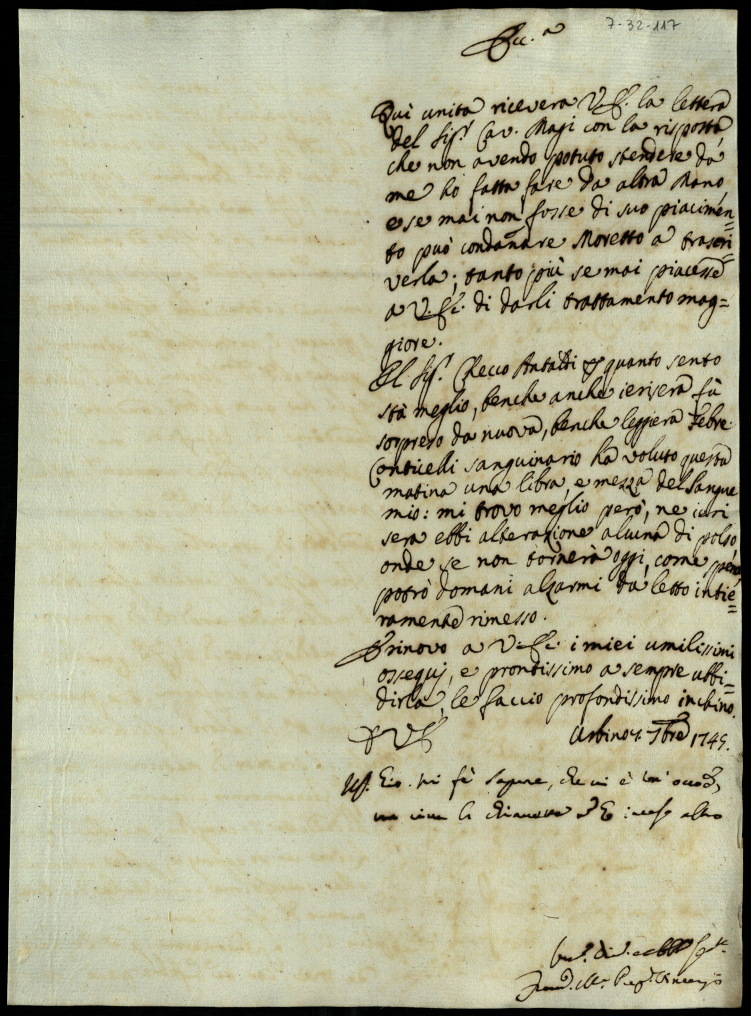 7-32-117
Ecc.a
Qui unita riceverà V.E. la lettera
del Sig.r Cav. Magi con la risposta,
che non avendo potuto stendere da
me hò fatta fare da altra Mano,
e se mai non fosse di suo piacimen=
to può condañare Moretto a trascri=
verla; tanto più se mai piacesse
a V.E. di darli trattamento mag=
giore.
Il Sig.r Checco Antaldi quanto sento
stà meglio, benche anche ierisera fù
sorpreso da nuova, benche leggera Febre.
Conticelli sanguinario hà voluto questa
matina una libra, e mezza del sangue
mio: mi trovo meglio però, ne ieri
sera ebbi alterazione alcuna di polso
onde se non tornerà oggi, come
potrò domani alzarmi da letto intie=
ramente rimesso.
E rinovo a V.E. i miei umilissimi
ossequj, e prontissimo a sempre ubbi=
dirla, le faccio profondissimo inchino.
D V E
Urbino 4. 7bre 1745.
mi fà sapere, che vi è
altro